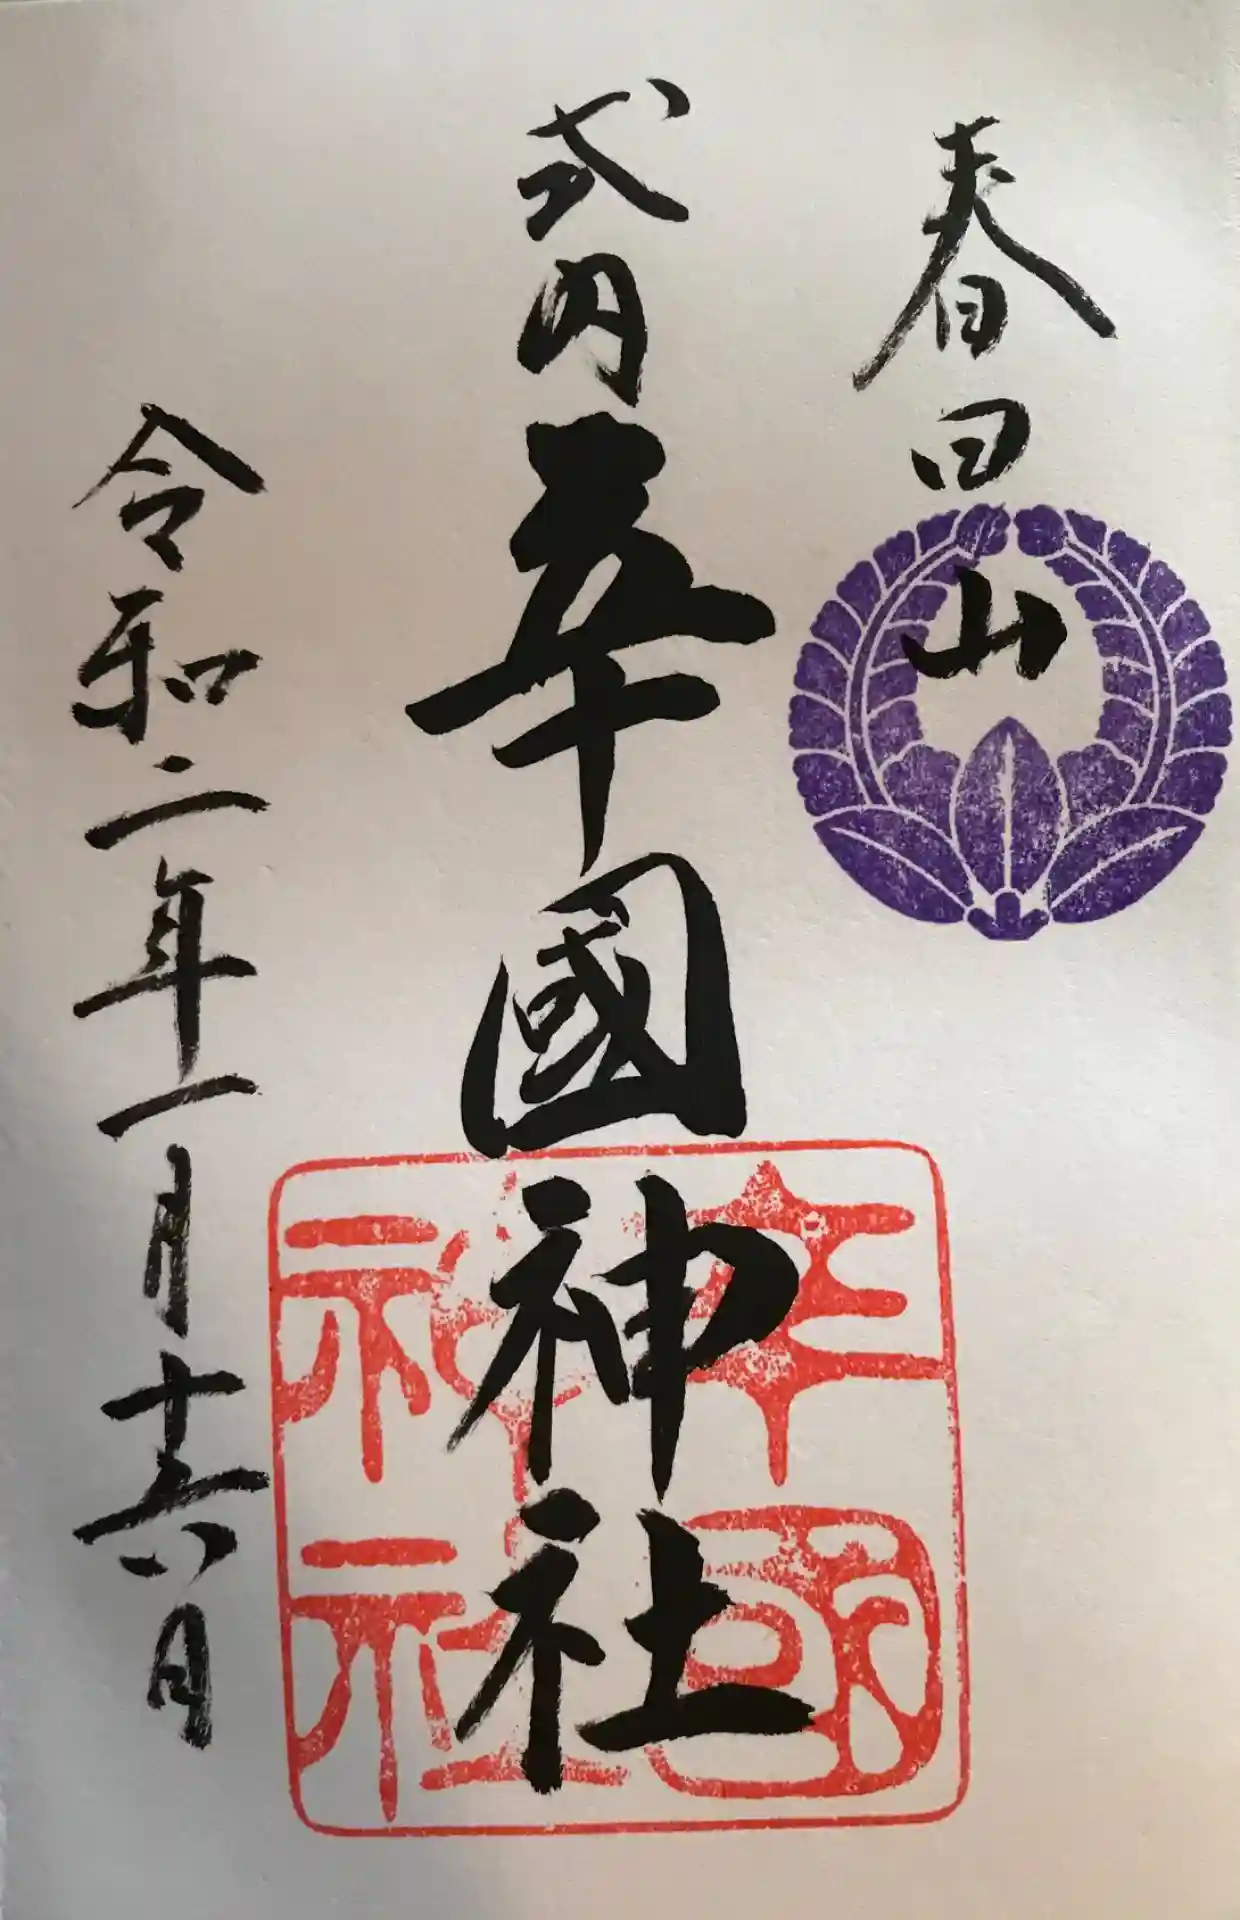 春日山
式内 辛國神社
令和二年一月十六日
辛國
神社